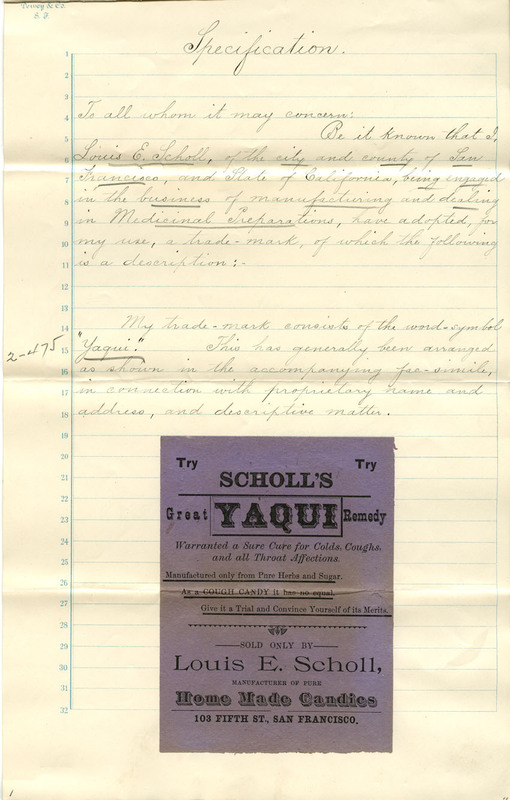 Dewey & Co.
S. F.
Specification.
1
2
3
4 To all whom it may concern:
5 Be it known that I,
6 Louis E. Scholl, of the city and county of San
7 Francisco, and State of California, being engaged
8 in the business of manufacturing and dealing
9 in Medicinal Preparations, have adopted, for
10 my use, a trade-mark, of which the following
11 is a description:-
12
13
14 My trade-mark consists of the word-symbol
2-475 15 "Yaqui." This has generally been arranged
16 as shown in the accompanying fac-simile,
17 in connection with proprietary name and
18 address, and descriptive matter.
19
20
21
22
23
24
25
26
27
28
29
30
31
32
Try Try
SCHOLL'S
Great YAQUI Remedy
Warranted a Sure Cure for Colds, Coughs,
and all Throat Affections.
Manufactured only from Pure Herbs and Sugar.
As a COUGH CANDY it has no equal.
Give it a Trial and Convince Yourself of its Merits.
SOLD ONLY BY
Louis E. Scholl,
MANUFACTURER OF PURE
Home Made Candies
103 FIFTH ST., SAN FRANCISCO.